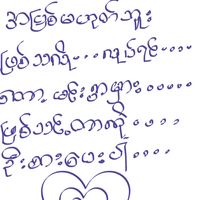 အမြစ်မဟုတ်ဘူး
ဖြစ်သလို...လုပ်ရင်....
တော့ မင်းအမှား.....
ဖြစ်သင့်တာကို....
ဦးစားပေးပါ....